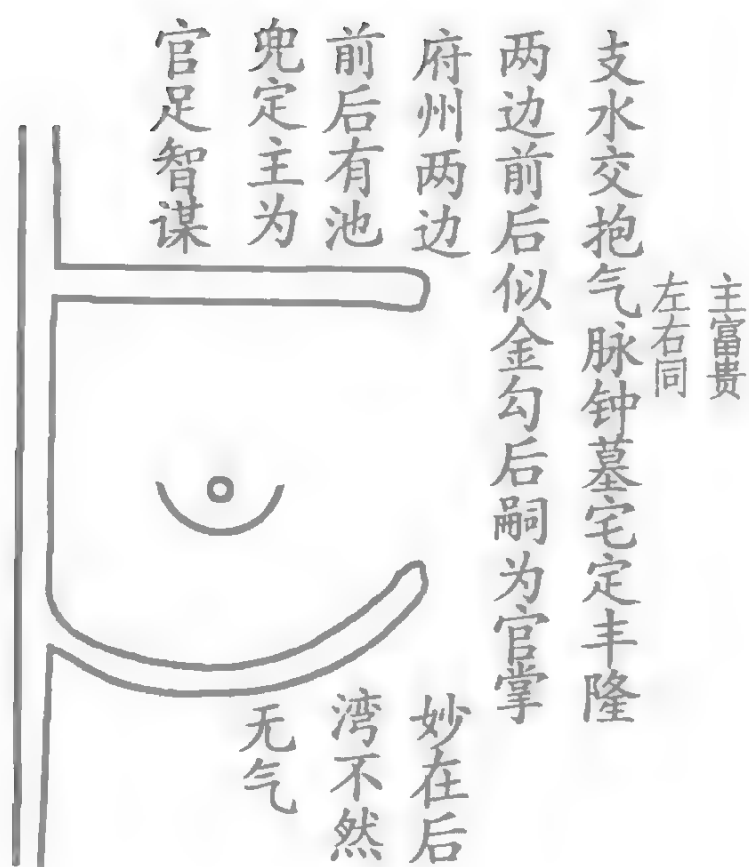 主富贵
左右同
支水交抱气脉钟墓宅定丰隆
两边前后似金勾后嗣为官掌
府州两边
前后有池
兜定主为
官足智谋
妙在后
湾不然
无气